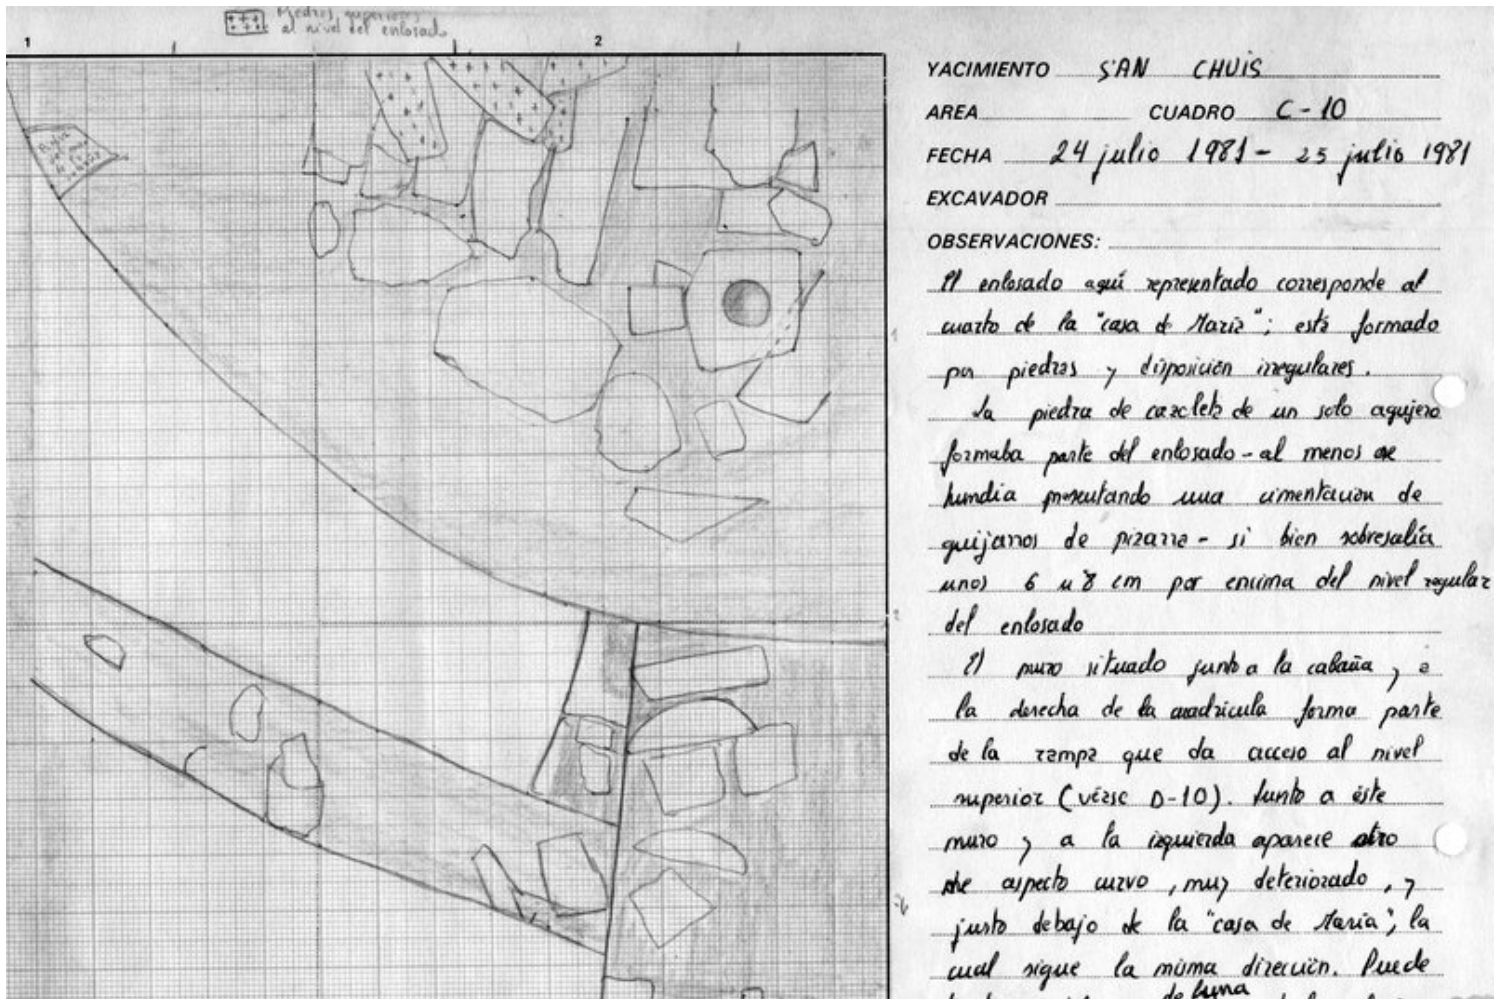 Piedras superiores
al nivel del enlosado
1
2
YACIMIENTO SAN CHUIS
AREA CUADRO C-10
FECHA 24 julio 1981 - 25 julio 1981
EXCAVADOR
OBSERVACIONES:
El enlosado aquí representado corresponde al
cuarto de la "casa de María"; está formado
por piedras y disposición irregulares.
La piedra de cazoleta de un solo agujero
formaba parte del enlosado - al menos se
hundía presentando una cimentación de
guijarros de pizarra - si bien sobresalía
unos 6 u 8 cm por encima del nivel regular
del enlosado
El muro situado junto a la cabaña, a
la derecha de la cuadrícula forma parte
de la rampa que da acceso al nivel
superior (véase D-10). Junto a éste
muro y a la izquierda aparece otro
de aspecto curvo, muy deteriorado, y
justo debajo de la "casa de María", la
cual sigue la misma dirección. Puede
de luna